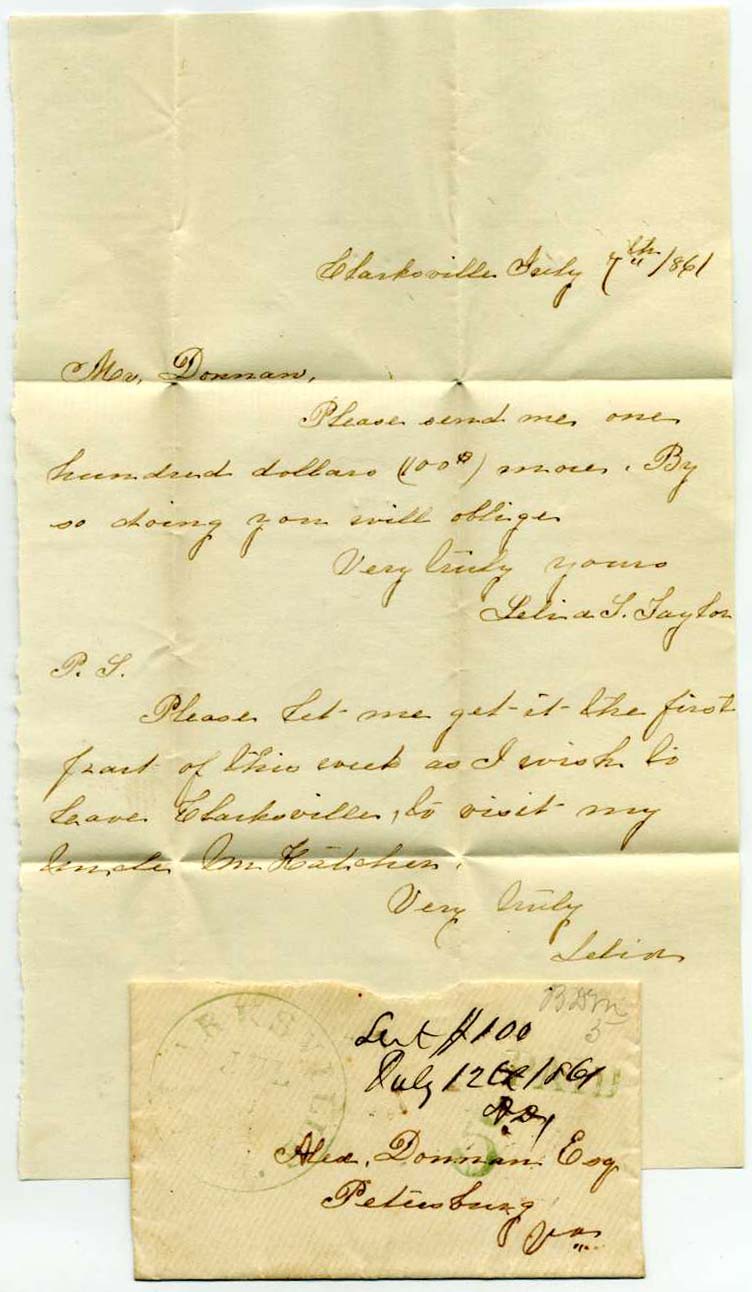 Clarksville July 7th /861
Mr. Donnan,
Please send me one
hundred dollars (100$) more. By
so doing you will oblige
Very truly yours
Lelia S. Taylor
P. S.
Please let me get it the first
part of this week as I wish to
leave Clarksville, to visit my
Uncle Wm Hatcher.
Very truly
Lelia
RKSVILLE
B D M
5
Sent $100
July 12th 1861
A D
PAID
5
Alex. Donnan Esq
Petersburg
Va